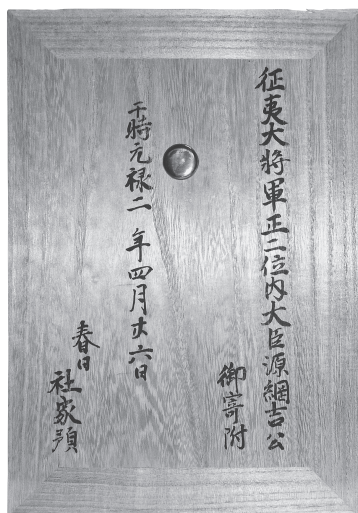 征夷大将軍正二位内大臣源綱吉公
御寄附
于時元禄二年四月廿六日
春日
社家預